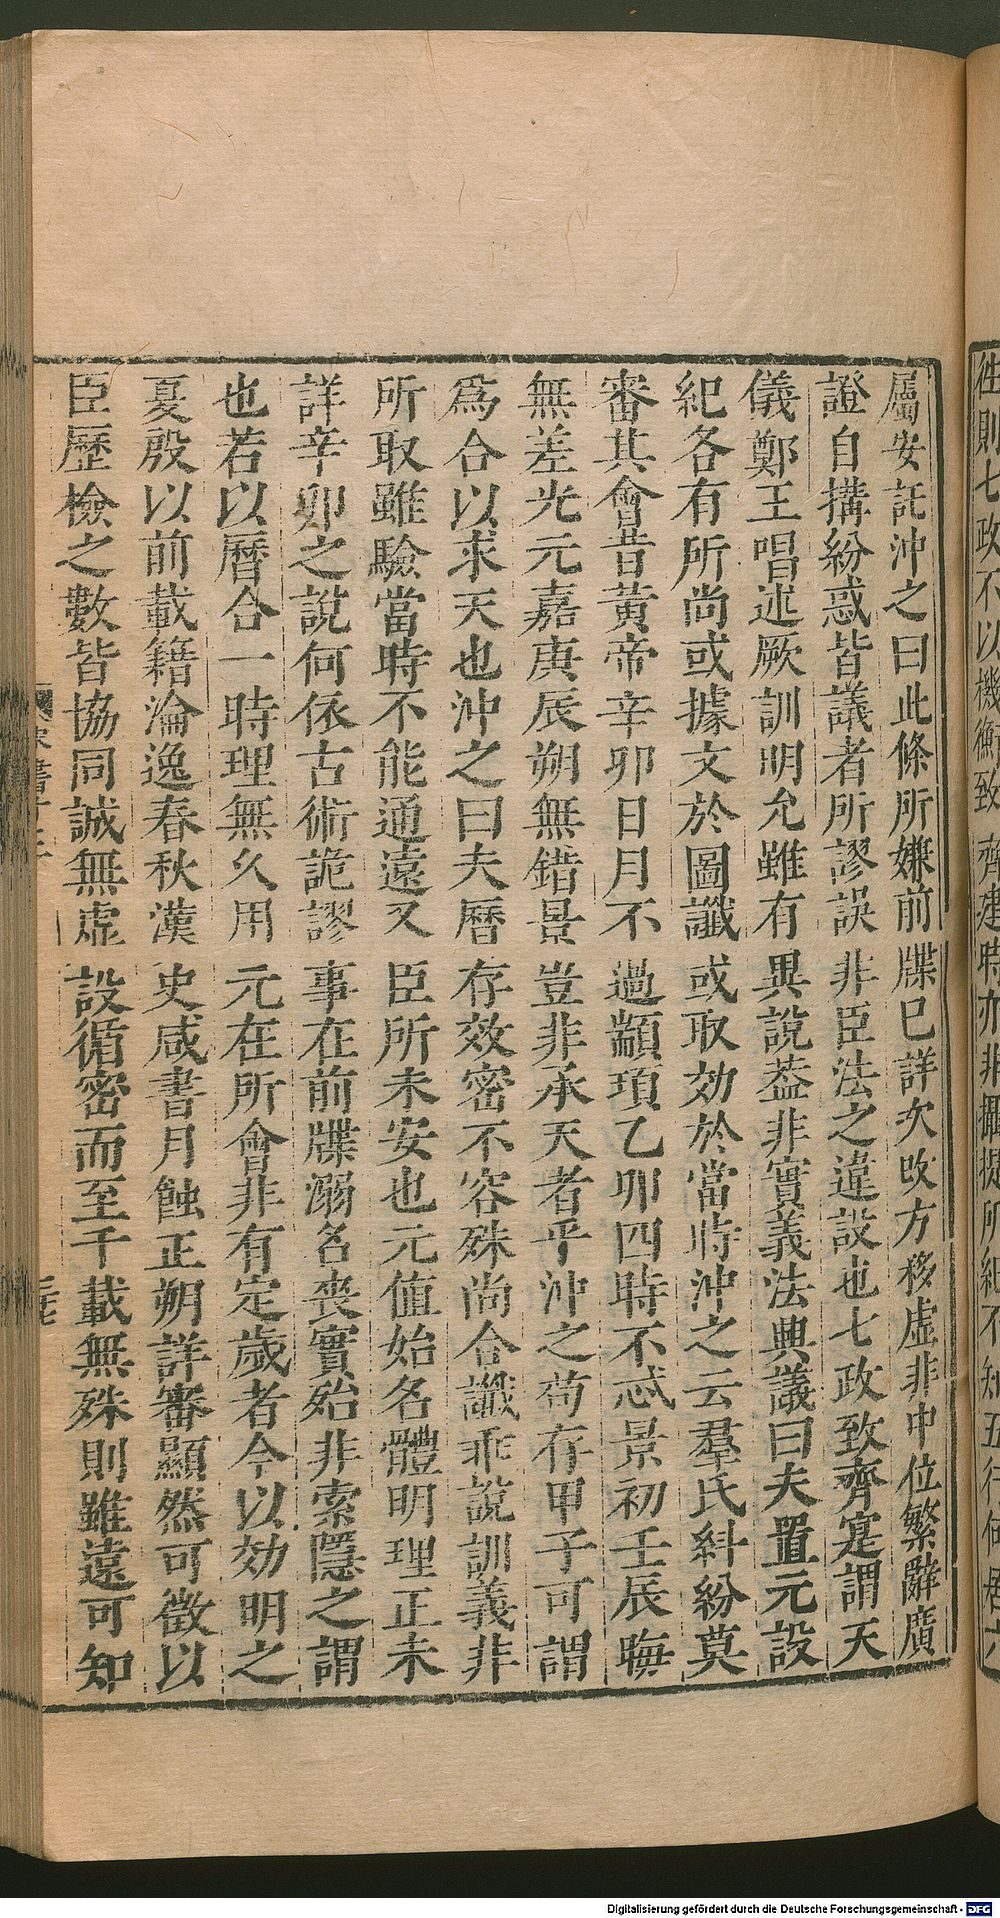 屬安託沖之曰此條所嫌前牒巳詳次改方移虛非中位繁辭廣
證自搆紛惑皆議者所謬誤非臣法之違設也七政致齊寔謂天
儀鄭王唱述厥訓明允雖有異說葢非實義法興議曰夫置元設
紀各有所尚或據文於圖讖或取効於當時沖之云羣氏糾紛莫
審其會昔黃帝辛卯日月不過顓頊乙卯四時不忒景初壬辰晦
無差光元嘉庚辰朔無錯景豈非承天者乎沖之苟存甲子可謂
爲合以求天也沖之曰夫曆存效密不容殊尚合讖乖說訓義非
所取雖驗當時不能通遠又臣所未安也元值始名體明理正未
詳辛卯之說何依古術詭謬事在前牒溺名喪實殆非索隱之謂
也若以曆合一時理無久用元在所會非有定歲者今以効明之
夏殷以前載籍淪逸春秋漢史咸書月蝕正朔詳審顯然可徵以
臣歷檢之數皆協同誠無虛設循密而至千載無殊則雖遠可知
徃則七政不以機衡致齊建時亦非攝提所紀不知五行何居六
Digitalisierung gefördert durch die Deutsche Forschungsgemeinschaft - DFG